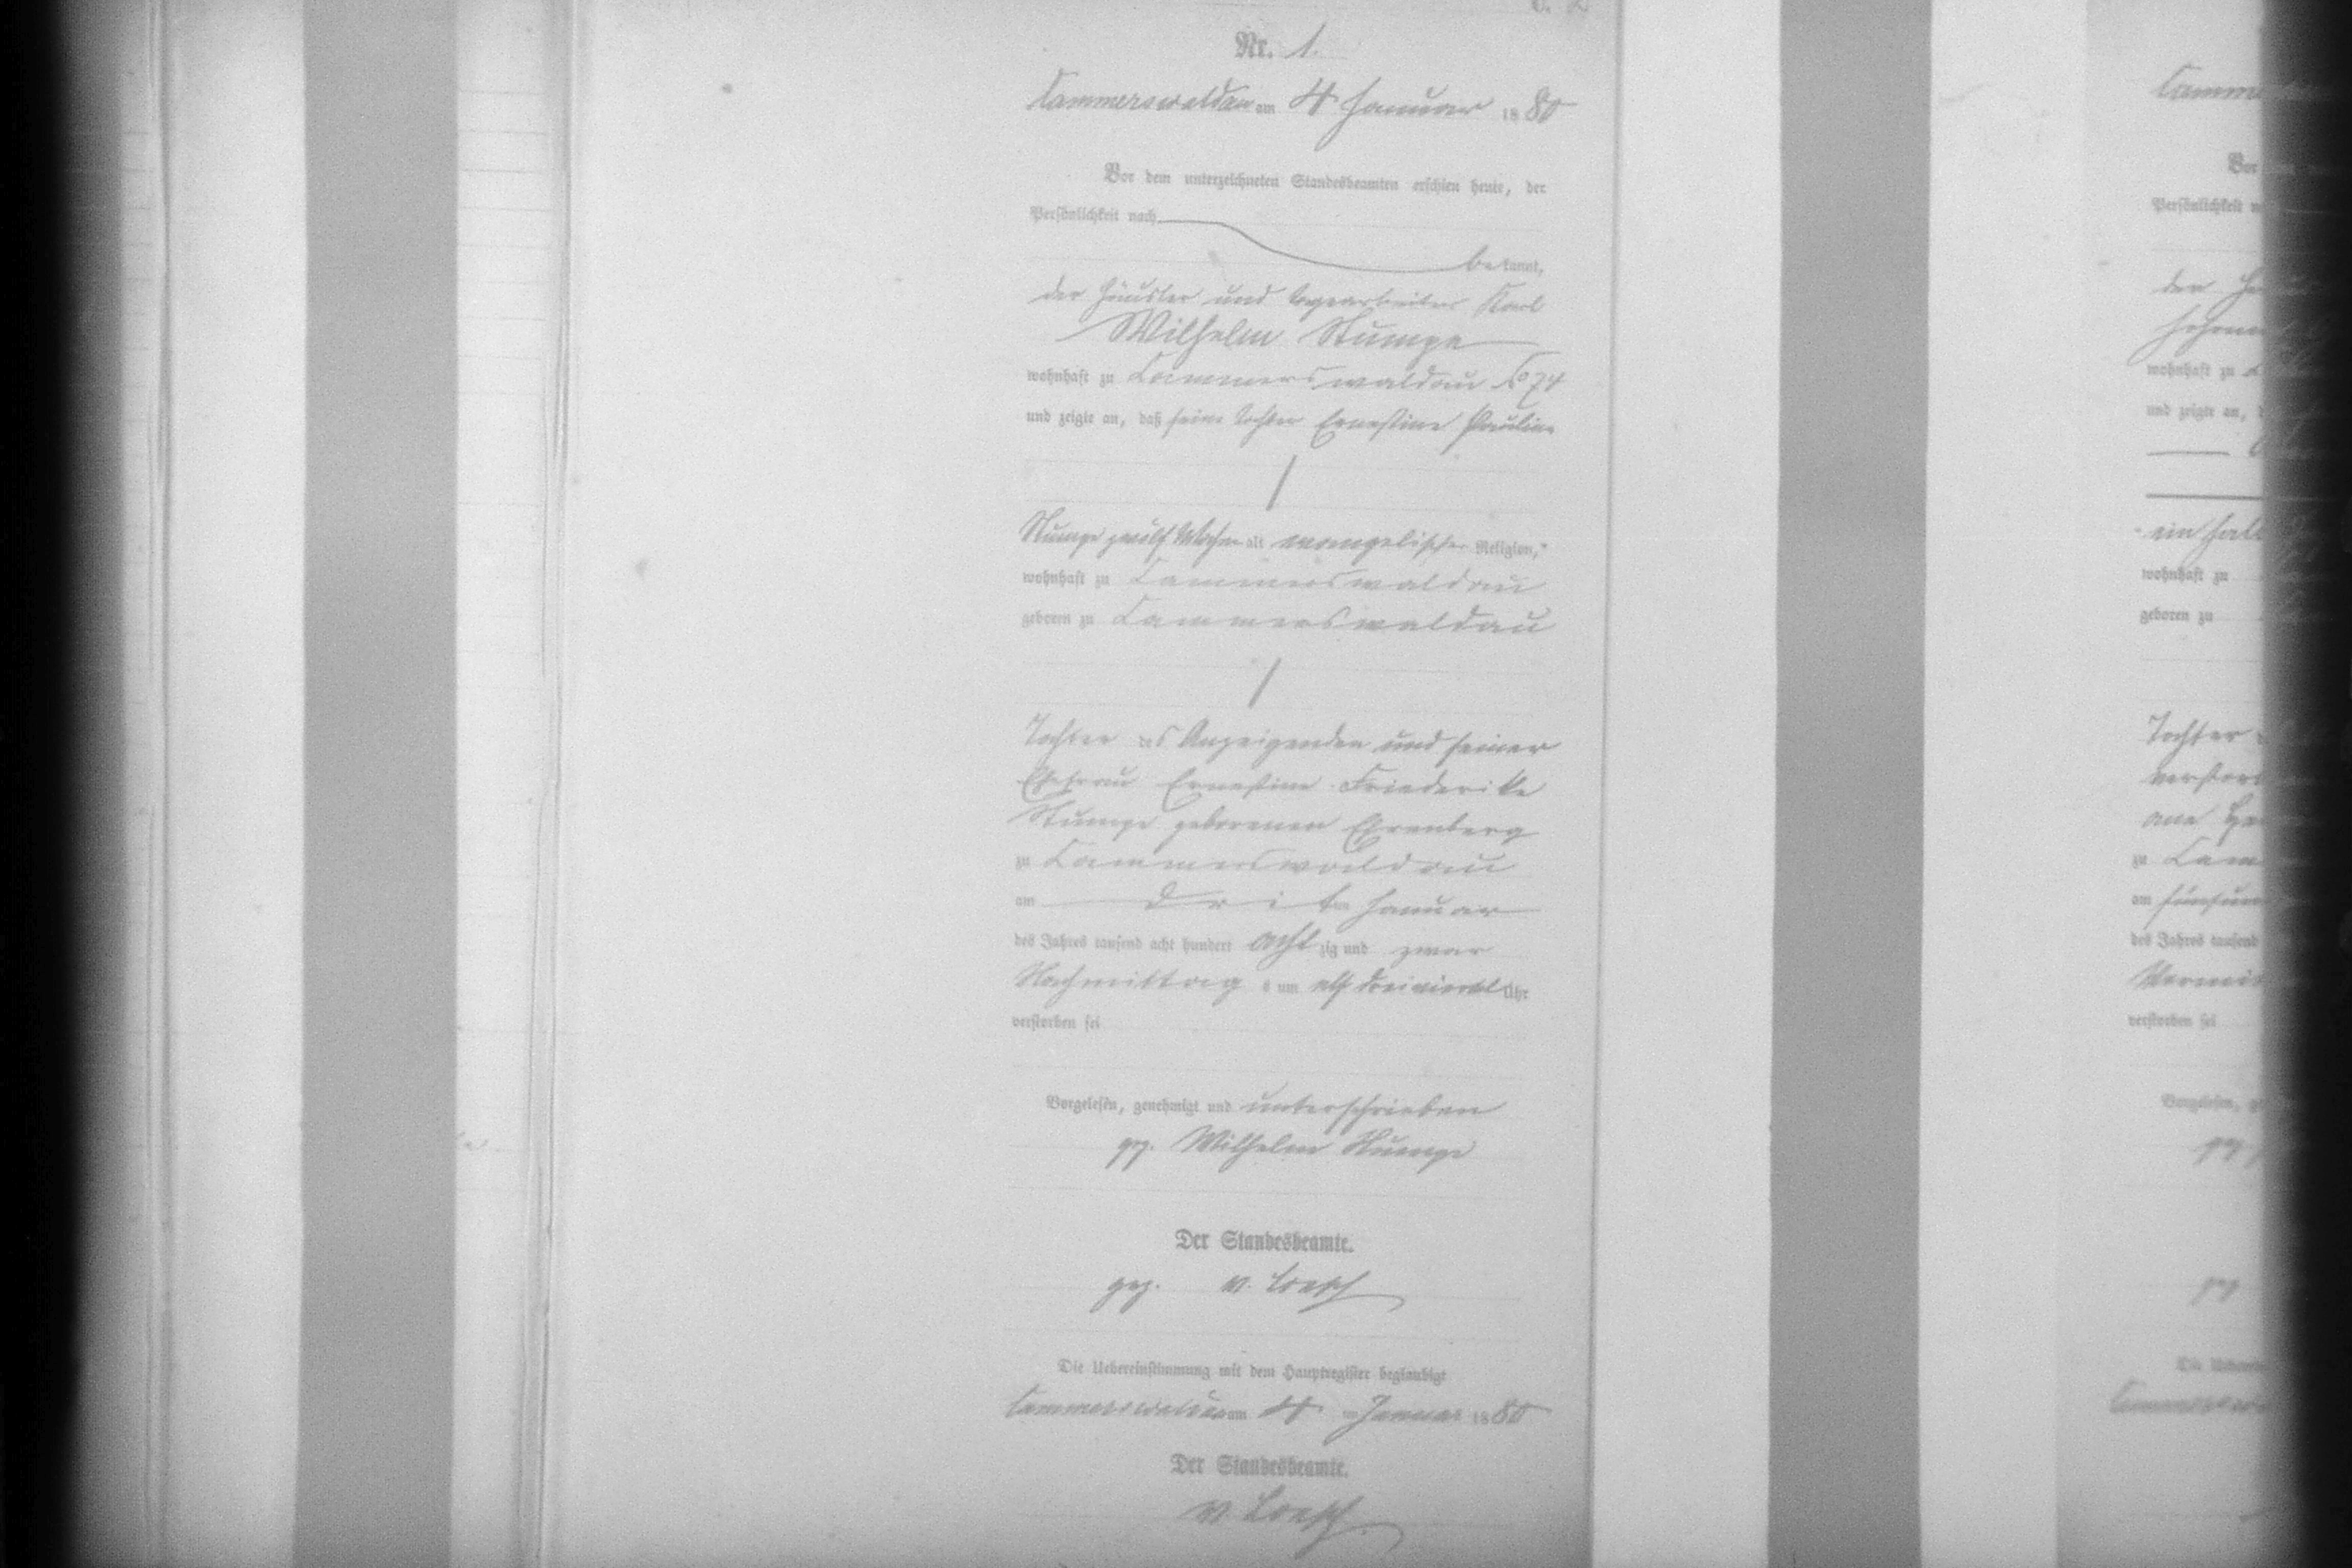 Nr. 1.
Cammerswaldau am 4 Januar 1880
Vor dem unterzeichneten Standesbeamten erschien heute, der
Persönlichkeit nach
bekannt,
der Häusler und Tagearbeiter Karl
Wilhelm Stumpe
wohnhaft zu Cammerswaldau No 74
und zeigte an, daß seine Tochter Ernestine Pauline
Stumpe zwölf Wochen alt evangelischer Religion,
wohnhaft zu Cammerswaldau
geboren zu Cammerswaldau
Tochter des Anzeigenden und seiner
Ehefrau Ernestine Friederike
Stumpe geborenen Ehrenberg
zu Cammerswaldau
am dritten Januar
des Jahres tausend acht hundert achtzig und zwar
Nachmittags um elf dreiviertel Uhr
verstorben sei
Vorgelesen, genehmigt und unterschrieben
gez. Wilhelm Stumpe
Der Standesbeamte.
gez. v. Loesch
Die Uebereinstimmung mit dem Hauptregister beglaubigt
Cammerswaldau am 4 Januar 1880
Der Standesbeamte.
v. Loesch
Vor
Persönlichkeit
wohnhaft zu
und zeigte an,
wohnhaft zu
geboren zu
Tochter
zu
am
des Jahres tausend
verstorben sei
Vorgelesen,
gez
gez
Die